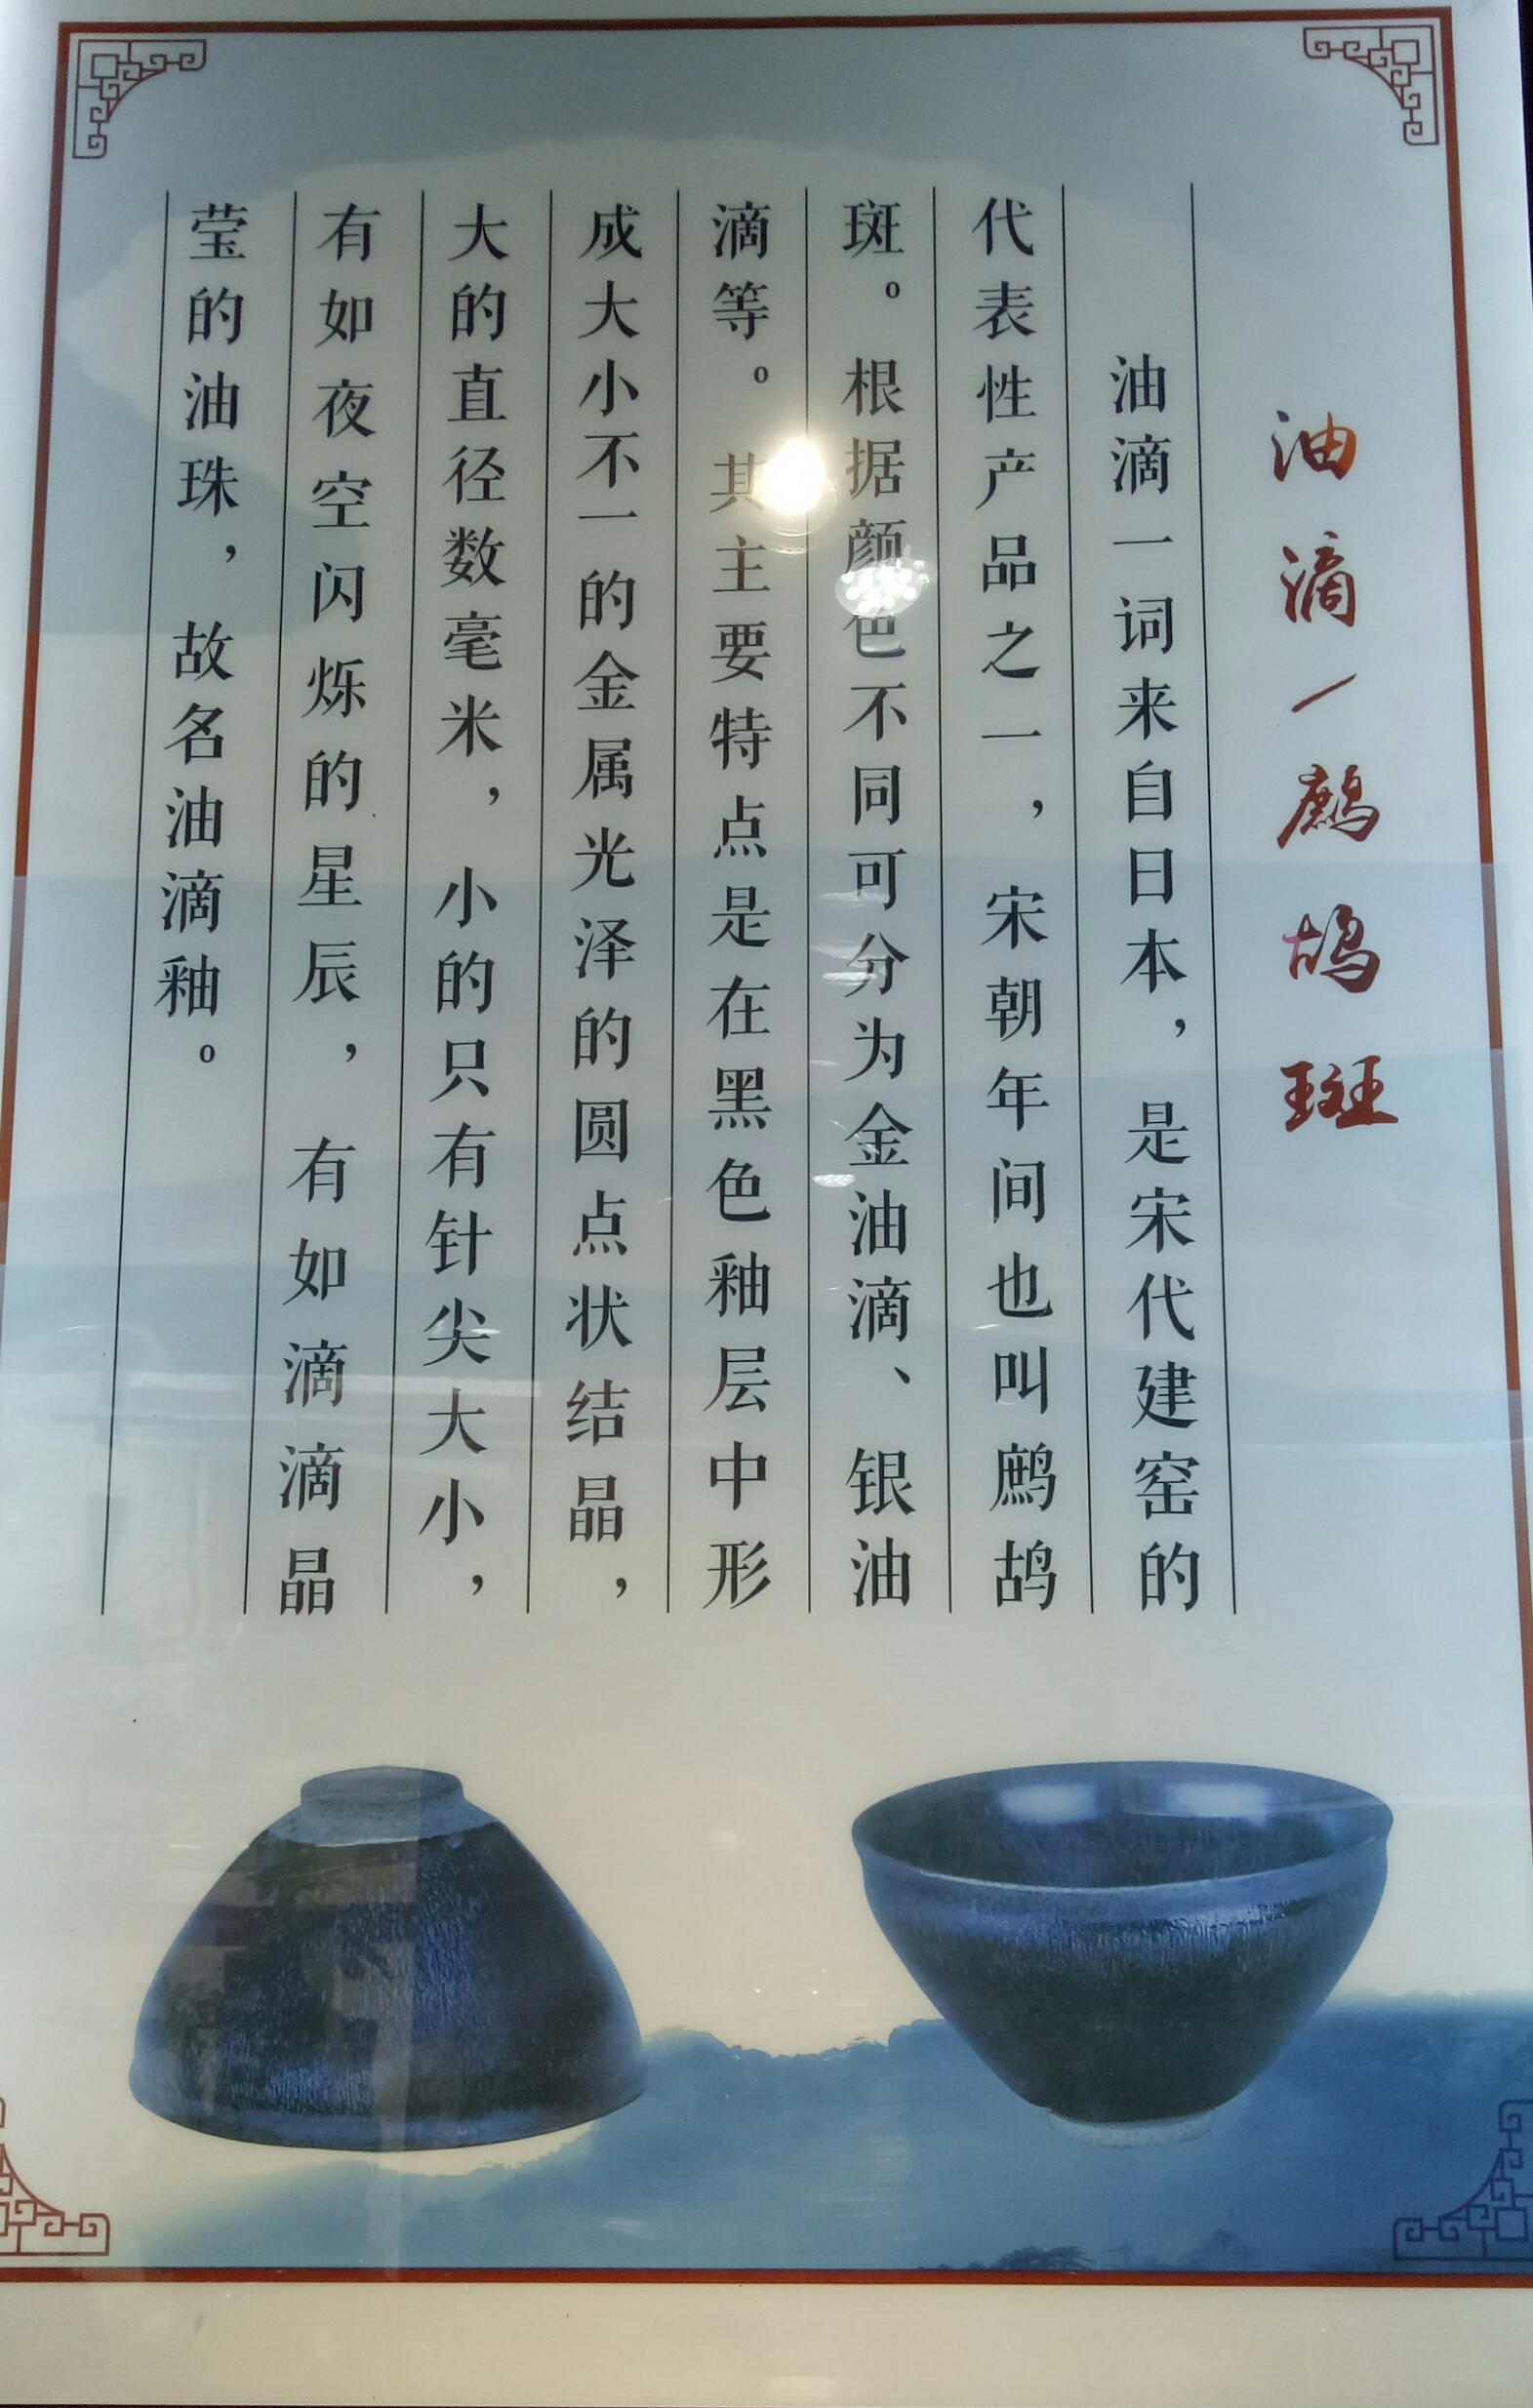 油滴/鹧鸪斑
油滴一词来自日本，是宋代建窑的
代表性产品之一，宋朝年间也叫鹧鸪
斑。根据颜色不同可分为金油滴、银油
滴等。其主要特点是在黑色釉层中形
成大小不一的金属光泽的圆点状结晶，
大的直径数毫米，小的只有针尖大小，
有如夜空闪烁的星辰，有如滴滴晶
莹的油珠，故名油滴釉。